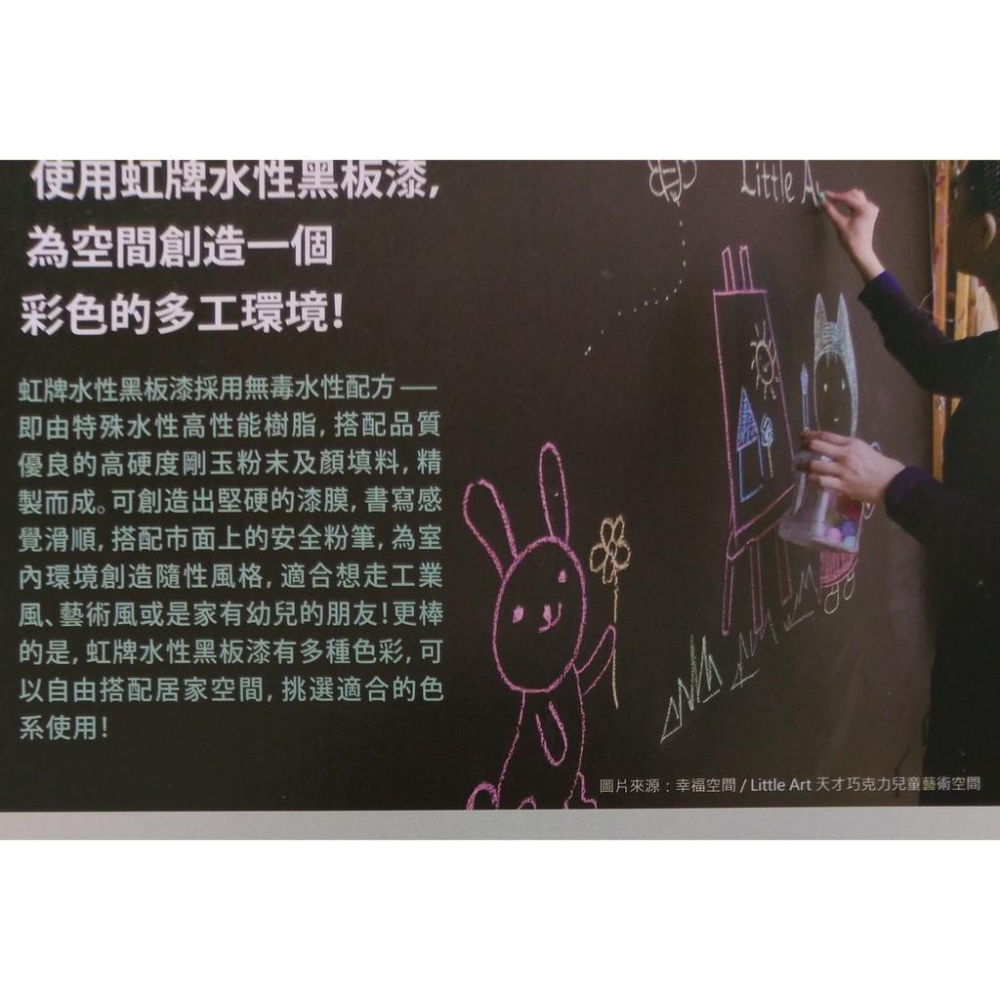 使用虹牌水性黑板漆,
為空間創造一個
彩色的多工環境!
虹牌水性黑板漆採用無毒水性配方 ——
即由特殊水性高性能樹脂, 搭配品質
優良的高硬度剛玉粉末及顏填料, 精
製而成。可創造出堅硬的漆膜, 書寫感
覺滑順, 搭配市面上的安全粉筆, 為室
內環境創造隨性風格, 適合想走工業
風、藝術風或是家有幼兒的朋友!更棒
的是, 虹牌水性黑板漆有多種色彩, 可
以自由搭配居家空間, 挑選適合的色
系使用!
Little A
圖片來源：幸福空間 / Little Art 天才巧克力兒童藝術空間